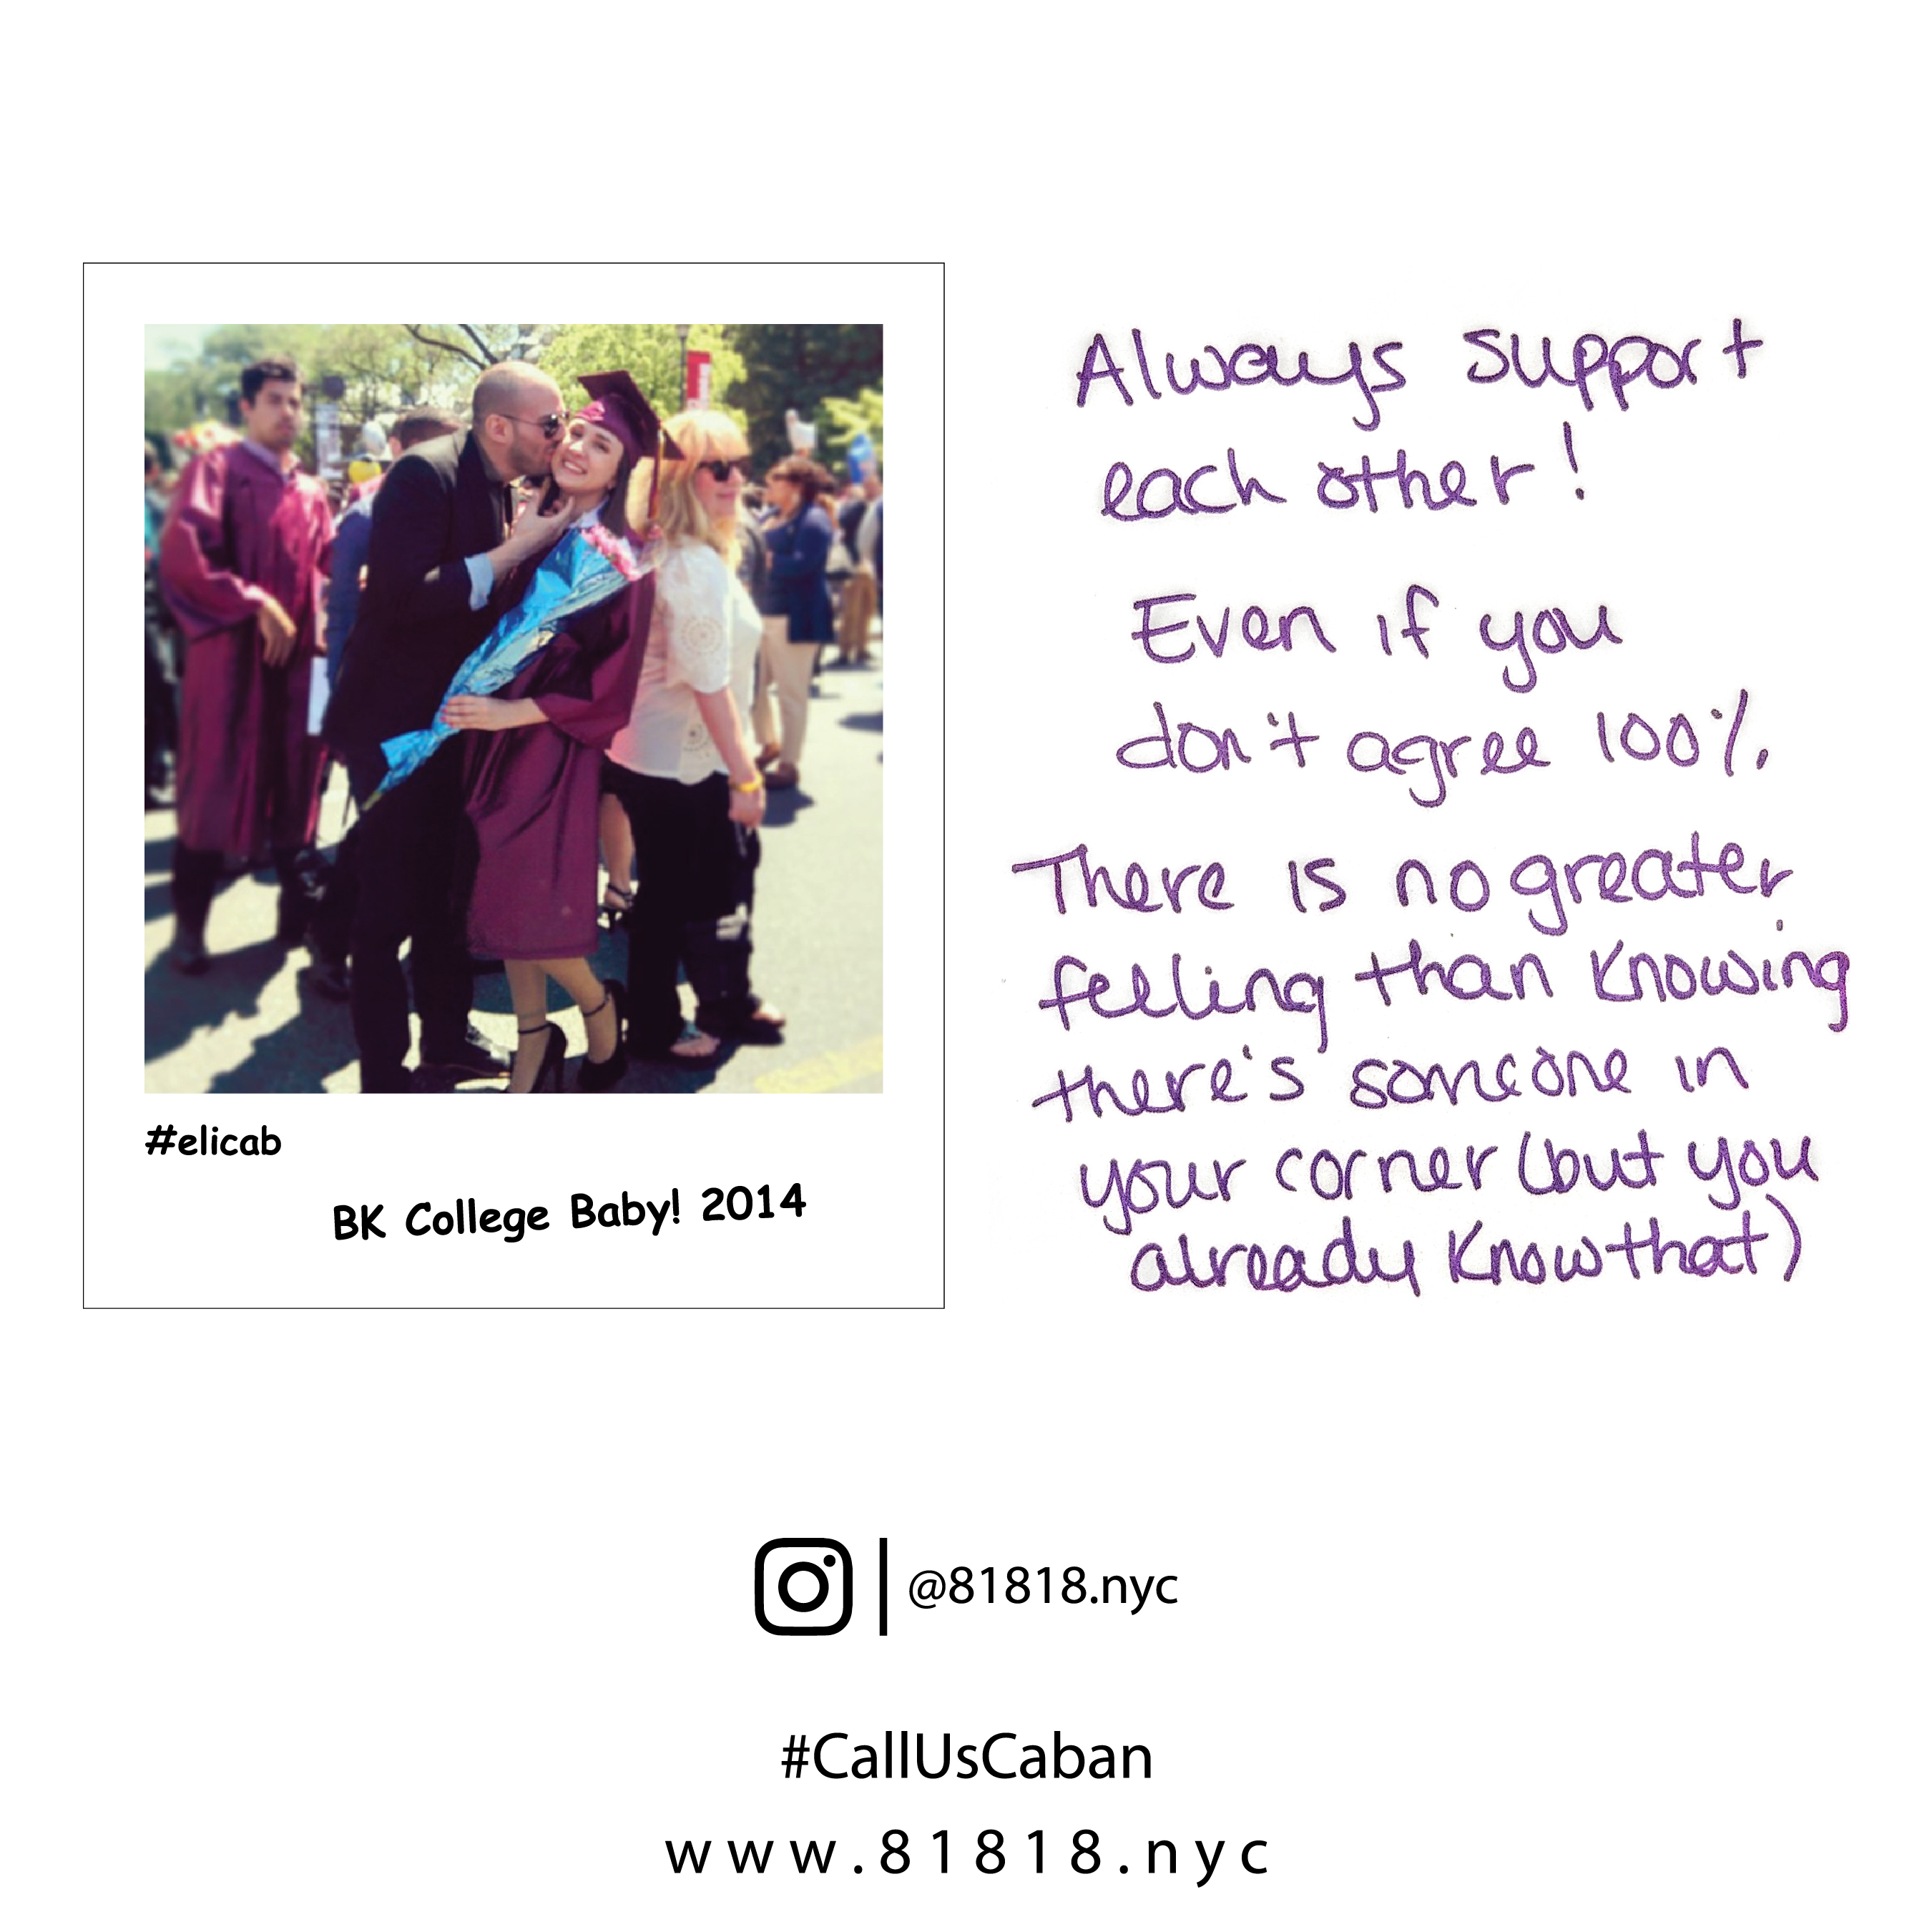 #elicab
BK College Baby! 2014
Always support
each other!
Even if you
don't agree 100%.
There is no greater
feeling than knowing
there's someone in
your corner (but you
already know that)
@81818.nyc
#CallUsCaban
www.81818.nyc